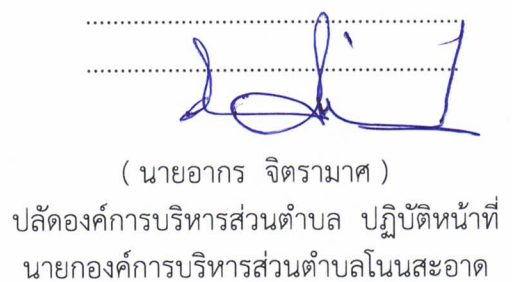 ( นายอากร จิตรามาศ )
ปลัดองค์การบริหารส่วนตำบล ปฏิบัติหน้าที่
นายกองค์การบริหารส่วนตำบลโนนสะอาด